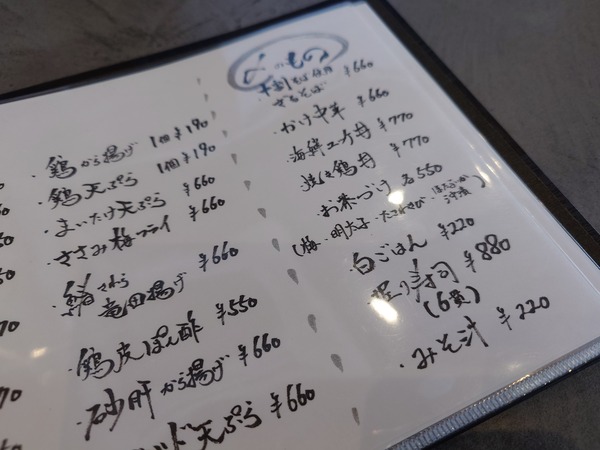 ・鶏から揚げ 1個¥190
・鶏天ぷら 1個¥190
・まいたけ天ぷら ¥660
・ささみ梅フライ ¥660
・鰆さわら竜田揚げ ¥660
・鶏皮ぽん酢 ¥550
・砂肝から揚げ ¥660
ド天ぷら ¥660
〆のもの
十割そば使用
・ざるそば ¥660
・かけ中華 ¥660
・海鮮ユッケ丼 ¥770
・焼き鶏丼 ¥770
・お茶づけ 各550
(梅・明太子・たこわさび・
・白ごはん ¥220
・握り寿司 ¥880
(6貫)
・みそ汁 ¥220